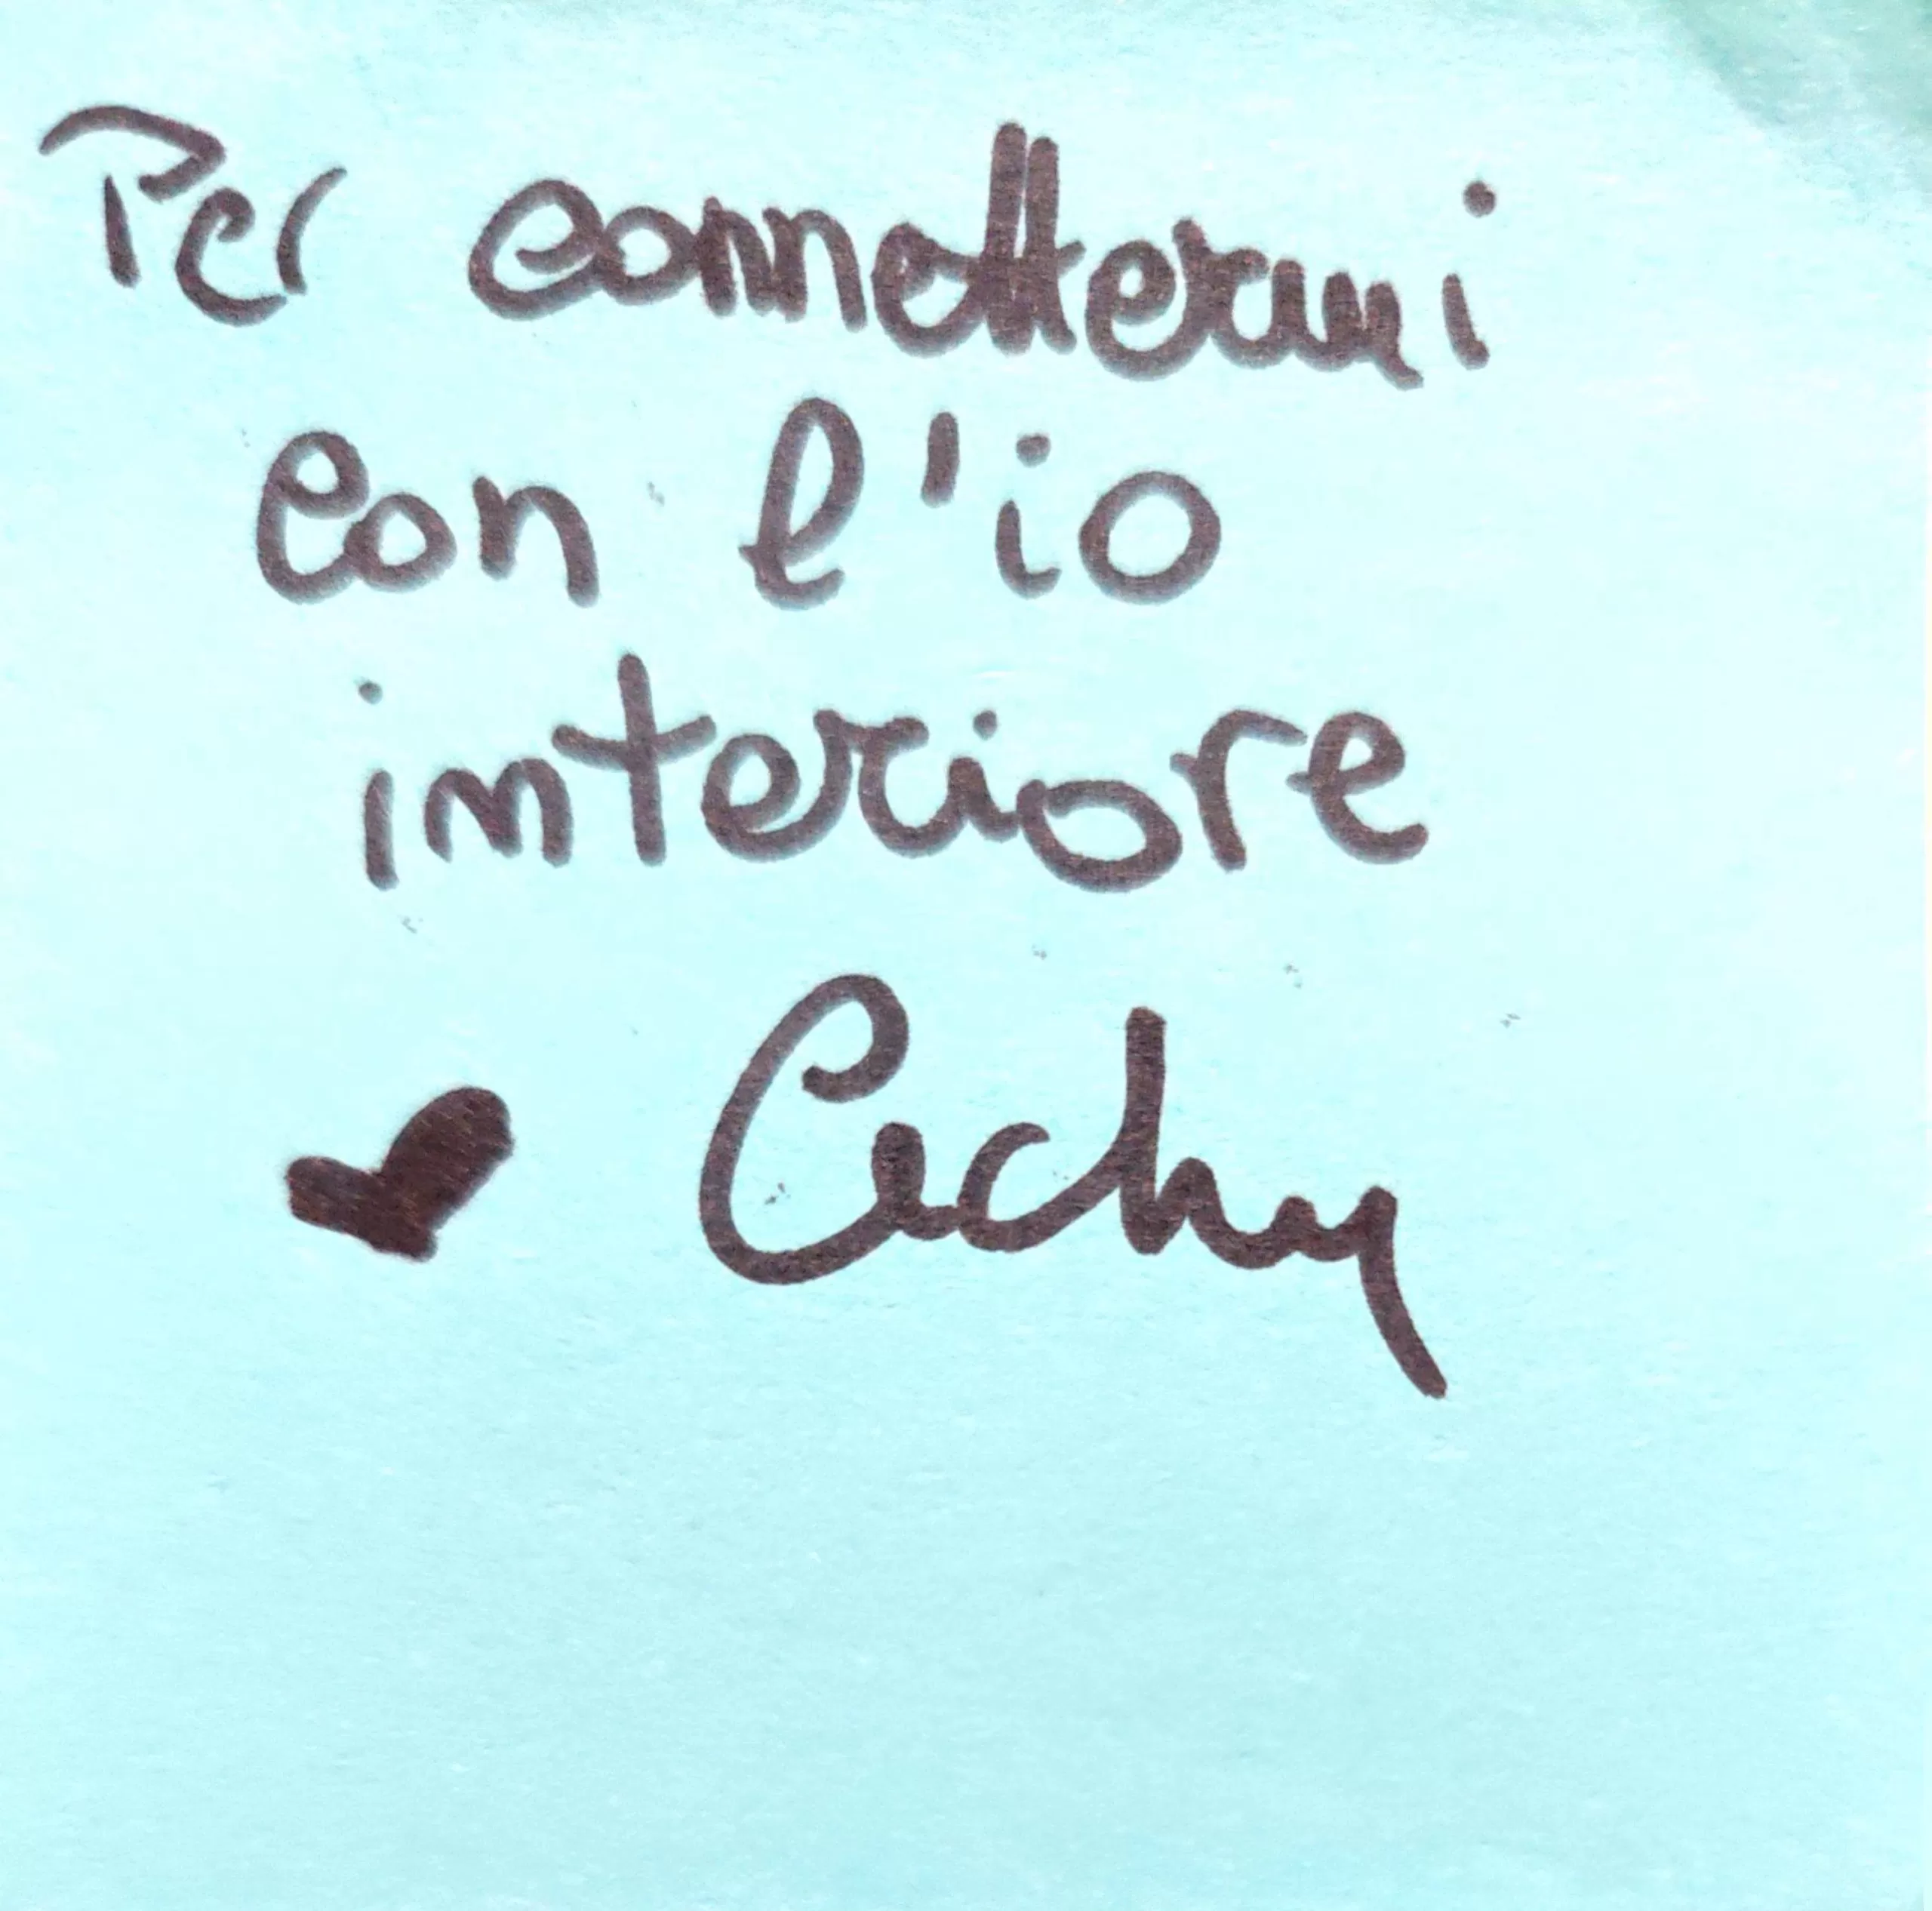 Per connettermi
con l'io
interiore
Cechy